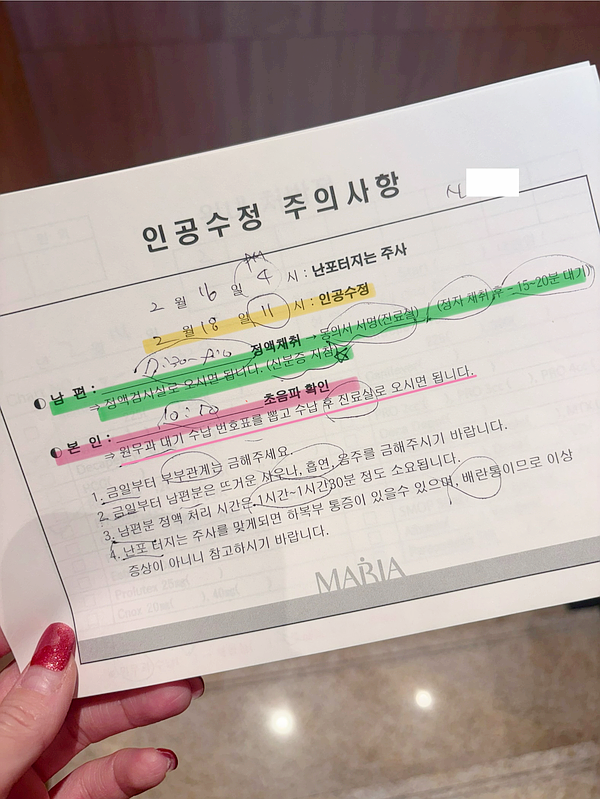 인공수정 주의사항
2월 16일 PM 4시 : 난포터지는 주사
2월 18일 11시 : 인공수정
◐ 남 편 : 정액채취 → 동의서 서명(진료실) (정자 채취 후 - 15~20분 대기)
⇒ 정액검사실로 오시면 됩니다. (신분증 지참)☆
◐ 본 인 : 10:50 초음파 확인
⇒ 원무과 대기 수납 번호표를 뽑고 수납 후 진료실로 오시면 됩니다.
1. 금일부터 부부관계는 금해주세요.
2. 금일부터 남편분은 뜨거운 사우나, 흡연, 음주를 금해주시기 바랍니다.
3. 남편분 정액 처리 시간은 1시간~1시간30분 정도 소요됩니다.
4. 난포 터지는 주사를 맞게되면 하복부 통증이 있을수 있으며, 배란통이므로 이상
증상이 아니니 참고하시기 바랍니다.
MARIA